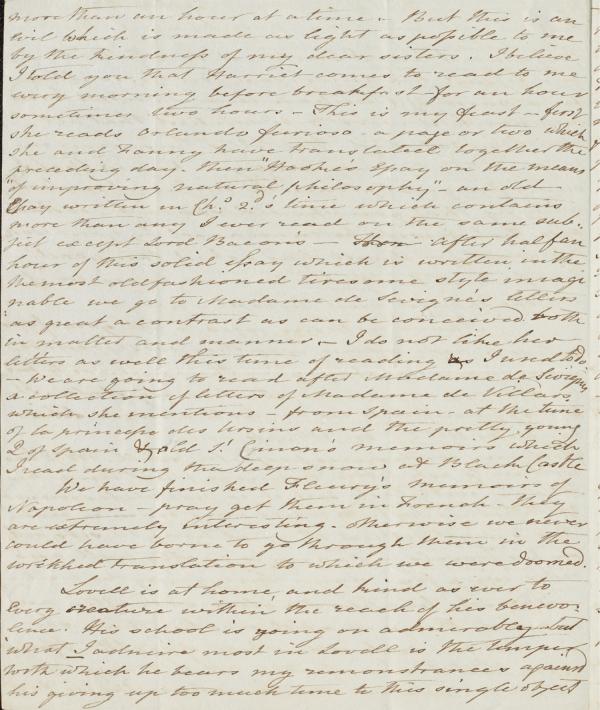 more than an hour at a time - But this is an
evil which is made as light as possible to me
by the kindness of my dear sisters. I believe
I told you that Harriet comes to read to me
every morning before breakfast for an hour
sometimes two hours - This is my feast - first
she reads Orlando furioso - a page or two which
she and Fanny have translated together the
preceding day - then "Hooke's Essay on the means
"of improving natural philosophy" - an old
Essay written in Chs 2d's time which contains
more than any I ever read on the same sub-
ject except Lord Bacon's - after half an
hour of this solid essay which is written in the
the most oldfashioned tiresome style imagi
nable we go to Madame de Sevigne's letters
as great a contrast as can be conceived both
in matter and manner - I do not like her
letters as well this time of reading as I used to do
- We are going to read after Madame de Sevigny
a collection of letters of Madame de Villars
which she mentions - from Spain - at the time
of la princesse des Ursins and the pretty, young
Q of Spain & old St Simon's memoirs which
I read during the deep snow at Black Castle
We have finished Fleury's memoirs of
Napoleon - pray get them in French - They
are extremely interesting - otherwise we never
could have borne to go through them in the
wretched translation to which we were doomed.
Lovell is at home, and kind as ever to
Every creature within the reach of his benevo-
lence. His school is going on admirably - but
what I admire most in Lovell is the temper
with which he bears my remonstrances against
his giving up too much time to this single object